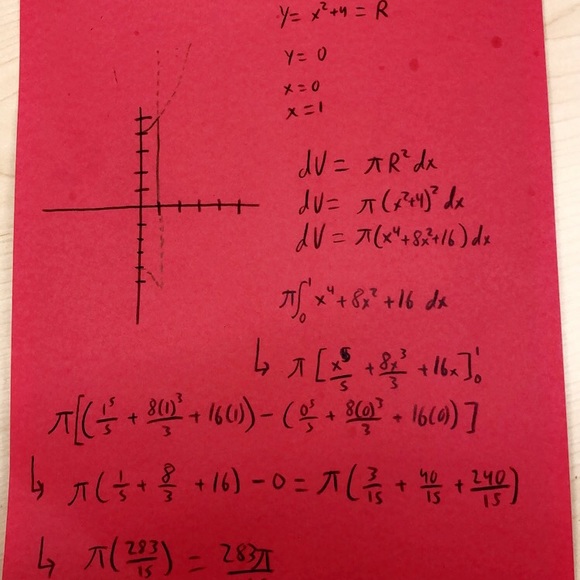 y = x²+4 = R
y = 0
x = 0
x = 1
dV = πR² dx
dV = π(x²+4)² dx
dV = π(x⁴+8x²+16) dx
π∫₀¹ x⁴ + 8x² + 16 dx
↳ π [x⁵/5 + 8x³/3 + 16x]₀¹
π[(1⁵/5 + 8(1)³/3 + 16(1)) - (0⁵/5 + 8(0)³/3 + 16(0))]
↳ π(1/5 + 8/3 + 16) - 0 = π(3/15 + 40/15 + 240/15)
↳ π(283/15) = 283π